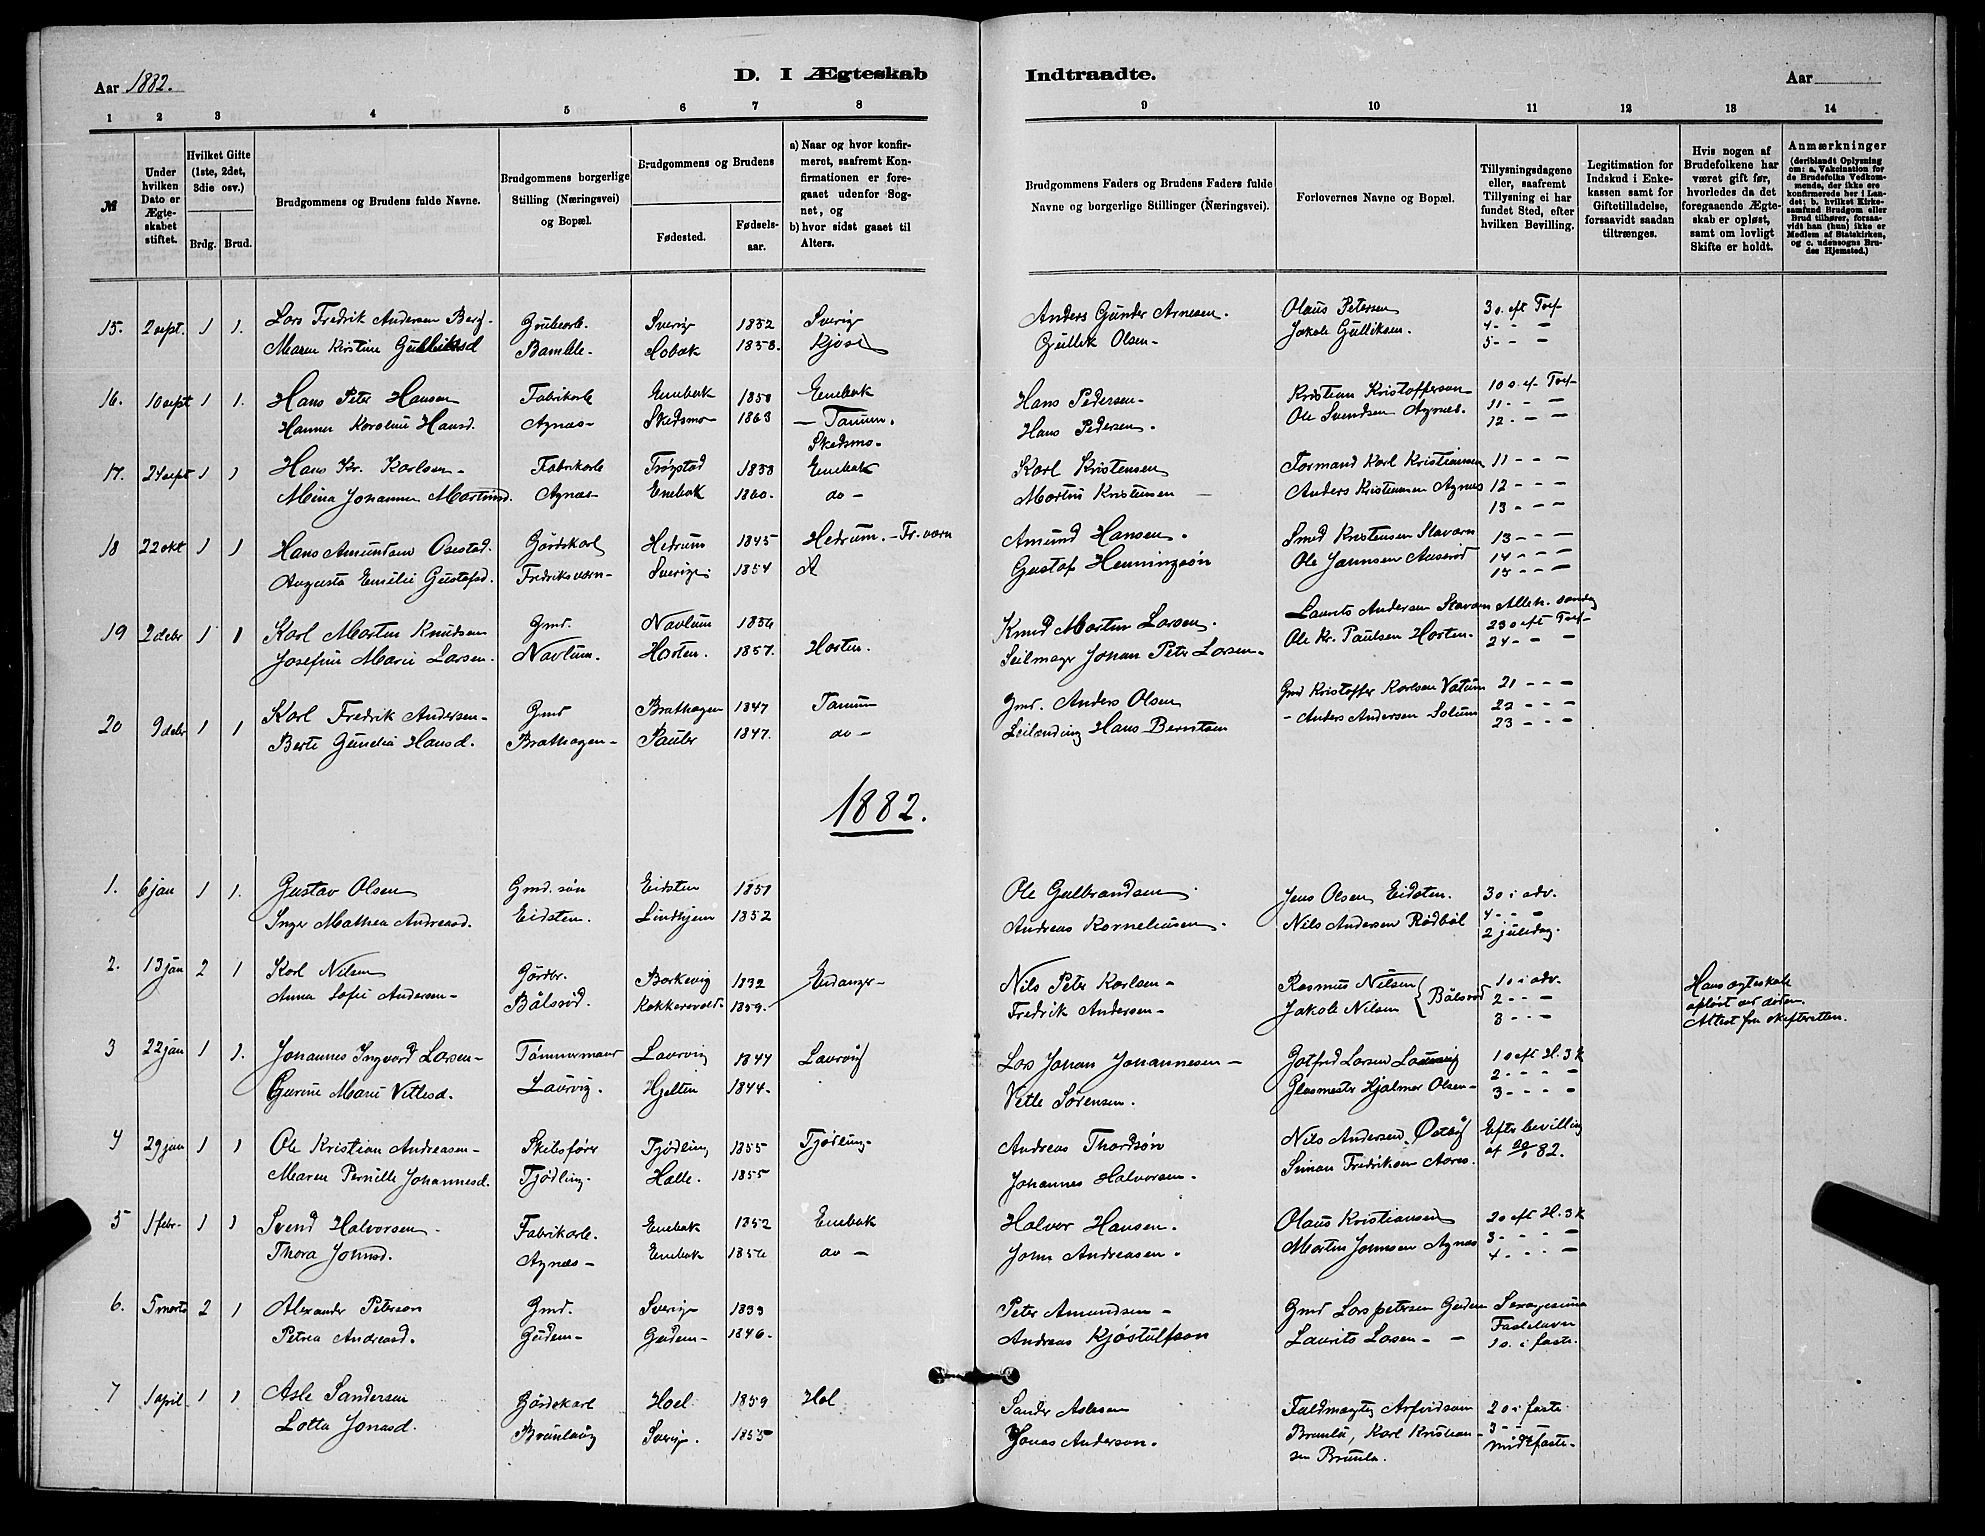 Aar 1882.
D. I Ægteskab
Indtraadte.
Aar
1 2 3 4 5 6 7 8 9 10 11 12 13 14
№
Under hvilken Dato er Ægteskabet stiftet.
Hvilket Gifte (1ste, 2det, 3die osv.)
Brdg. Brud.
Brudgommens og Brudens fulde Navne.
Brudgommens borgerlige Stilling (Næringsvei) og Bopæl.
Brudgommens og Brudens
Fødested.
Fødselsaar.
a) Naar og hvor konfirmeret, saafremt Konfirmationen er foregaaet udenfor Sognet, og
b) hvor sidst gaaet til Alters.
Brudgommens Faders og Brudens Faders fulde Navne og borgerlige Stillinger (Næringsvei).
Forlovernes Navne og Bopæl.
Tillysningsdagene eller, saafremt Tillysning ei har fundet Sted, efter hvilken Bevilling.
Legitimation for Indskud i Enkekassen samt for Giftetilladelse, forsaavidt saadan tiltrænges.
Hvis nogen af Brudefolkene har været gift før, hvorledes da det foregaaende Ægteskab er opløst, samt om lovligt Skifte er holdt.
Anmærkninger (deriblandt Oplysning om: a. Vakcination for de Brudefolks Vedkommende, der ikke ere konfirmerede her i Landet; b. hvilket Kirkesamfund Brudgom eller Brud tilhører, forsaavidt han (hun) ikke er Medlem af Statskirken, og c. udensogns Brudes Hjemsted.)
15. 2 sept. 1 1. Lars Fredrik Andersen Berg. Grubearb. Sverig 1852 Sverig Anders Gunder Arnesen. Olaus Petersen 3 s. eft Tref
Maren Kirstine Gulliksd Bamble. Hobæk 1858. Kjose Gullik Olsen Jakob Gulliksen. 4 - - -
5 - - -
16. 10 sept 1 1. Hans Peter Hansen Fabrikarb Enebak 1858 Enebak Hans Pedersen Kristian Kristoffersen 10 s. ef. Tref
Hanna Karoline Hansd. Agnæs Skedsmo 1863 Tanum. Hans Pedersen. Ole Svendsen Agnes. 11 - - -
Skedsmo. 12 - - -
17. 24 sept 1 1 Hans Kr. Karlsen Fabrikarb Trøgstad 1853 Enebak Karl Kristensen Formand Karl Kristiansen 11 - - -
Mina Johanne Martinsd. Agnæs Enebak 1860. do Martin Kristensen Anders Kristiansen Agnæs 12 - - -
13 - - -
18 22 okt 1 1 Hans Amundsen Osestad. Gårdskarl Hedrum 1845 Hedrum. Fr.værn Amund Hansen. Smed Kristensen Staværn 13 - - -
Augusta Emilie Gustafsd. Fredriksværn Sverige 1854 Gustaf Henningsøn Ole Jannsen Aaserød 14 - - -
15 - - -
19 2 debr 1 1 Karl Martin Knudsen Gmd. Navlum 1856 Knud Martin Larsen. Laurits Andersen Staværn Alleh. søndag
Josefine Marie Larsen. Navlum. Horten. 1857. Horten. Seilmager Johan Peter Larsen Ole Kr. Paulsen Horten. 23 s eft Tref
24 - - -
20 9 debr 1 1 Karl Fredrik Andersen Gmd Brathagen 1847 Tanum Gmd. Anders Olsen Gmd Kristoffer Karlsen Vatum 21 - - -
Berte Gunelia Hansd. Brathagen Pauler 1847. do Leilænding Hans Berntsen Anders Andersen Solum 22 - - -
23 - - -
1882.
1. 6 jan 1 1. Gustav Olsen Gmd. søn Eidsten 1851 Ole Gulbrandsen. Jens Olsen Eidsten. 3 s i adv.
Inger Mathea Andreasd. Eidsten. Lindhjem 1852 Andreas Korneliusen. Nils Andersen Rødbøl 4 - - -
2 juledag.
2. 13 jan 2 1 Karl Nilsen Gårdbr. Barkevig 1832 Eidanger Nils Peter Karlsen Rasmus Nilsen Bålsrød 1 s i adv. Hans ægteskab
Anna Sofie Andersen Bålsrød. Kokkersvold 1859. Fredrik Andersen Jakob Nilsen 2 - - - opløst ved døden.
3 - - - Attest fra skifteretten.
3 22 jan 1 1. Johannes Ingvard Larsen Tømmermand Laurvig 1847 Laurvig Lars Johan Johannesen Gotfred Larsen Laurvig 1 s eft H. 3 k
Gurine Marie Vetlesd. Laurvig. Hjelten 1844. Vetle Sørensen. Glasmester Hjalmar Olsen 2 - - -
3 - - -
4 29 jan 1 1 Ole Kristian Andreasen Skibsfører Tjødling 1855 Tjødling Andreas Thordsøn Nils Andersen Østby Efter bevilling
Maren Pernille Johannesd. Tjødling. Halle. 1855 Johannes Halvorsen. Simon Fredriksen Aares. af 20/1 82.
5 1 febr. 1 1 Svend Halvorsen Fabrikarb. Enebak 1852 Enebak Halvor Hansen. Olaus Kristiansen 2 s eft H. 3 k
Thora Johnsd. Agnæs Enebak 1856 do John Andreasen. Martin Jonnsen Agnæs 3 - - -
4 - - -
6. 5 marts 2 1 Alexander Peterson Gmd. Sverige 1839 Peter Amundsen Gmd Lars Petersen Gudem Sexagesima
Petrea Andreasd. Gudem Gudem 1846. Andreas Kjøstulfson Laurits Larsen Fastelavn
1 s. i faste.
7 1 april 1 1 Asle Sandersen Gårdskarl Hoel 1859 Hol Sander Aslesen Fuldmægtig Arfvidson 2 s i faste.
Lotta Jonasd. Brunlavig Sverige. 1855 Jonas Anderson. Brunla, Karl Kristian- 3 - -
sen Brunla. midtfaste.